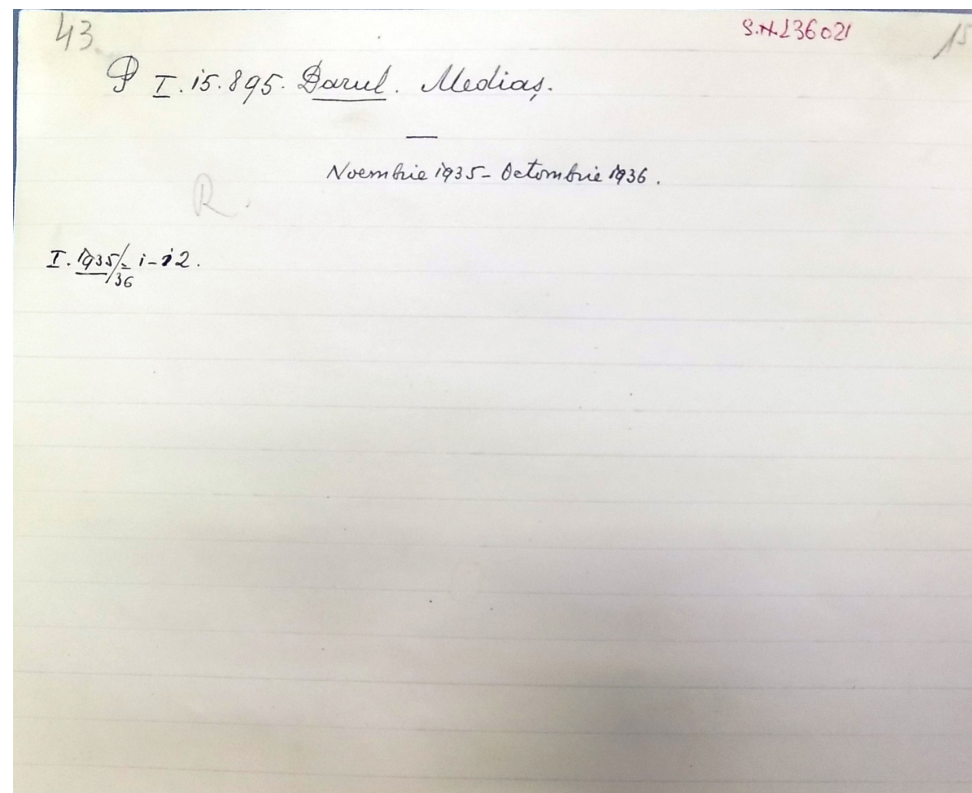 43 S.N.236021 15
P I.15.895. Darul. Mediaș.
—
Noembrie 1935 - Octombrie 1936.
R.
I. 1935/36 = 1-12.